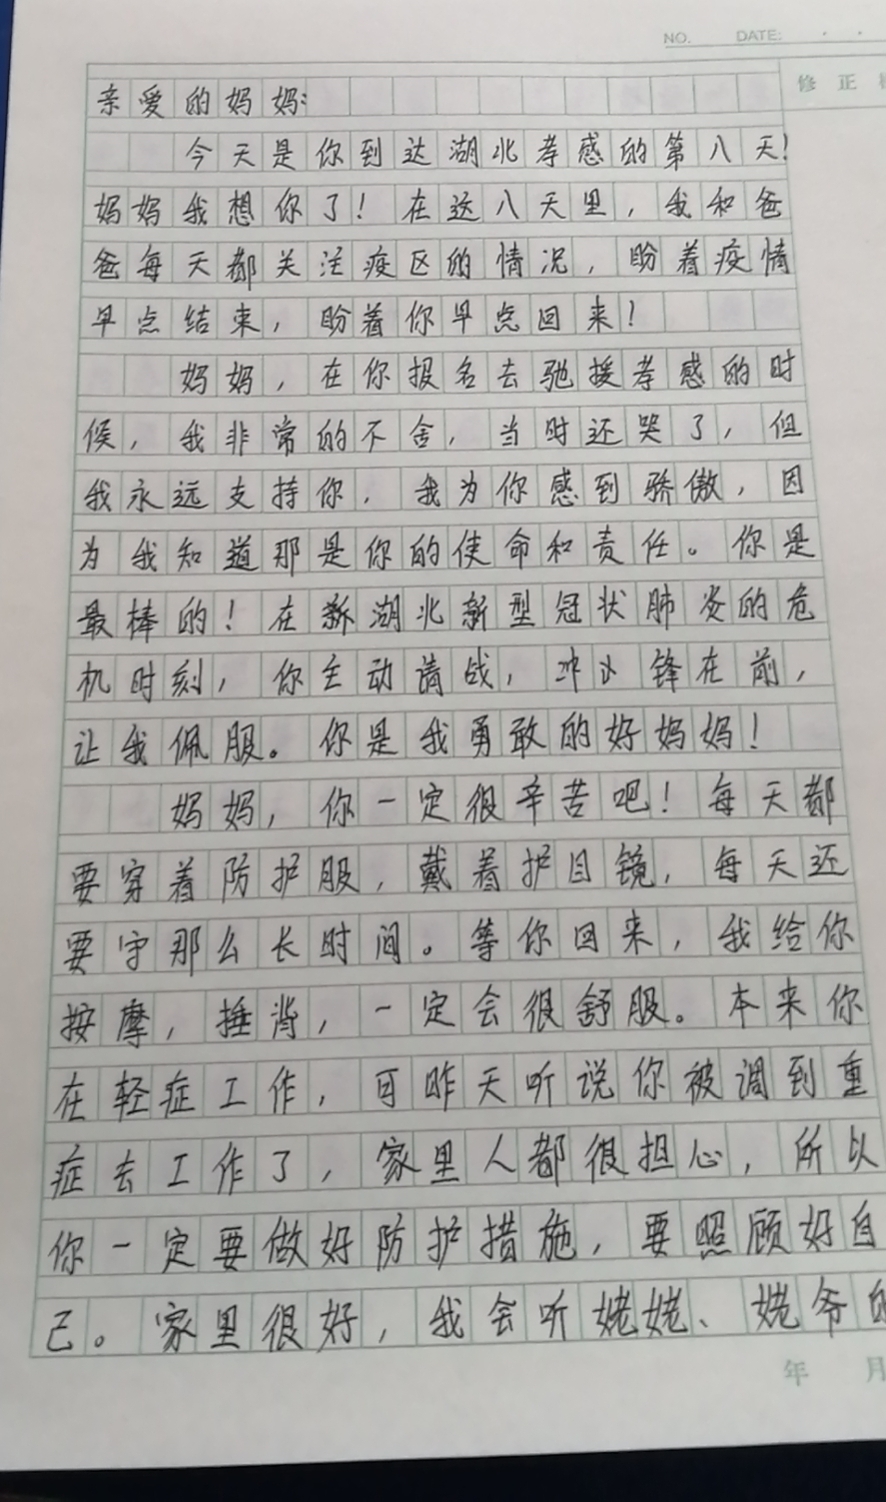 NO. DATE: . .
修 正
亲爱的妈妈:
今天是你到达湖北孝感的第八天!
妈妈我想你了!在这八天里,我和爸
爸每天都关注疫区的情况,盼着疫情
早点结束,盼着你早点回来!
妈妈,在你报名去驰援孝感的时
候,我非常的不舍,当时还哭了,但
我永远支持你,我为你感到骄傲,因
为我知道那是你的使命和责任。你是
最棒的!在新湖北新型冠状肺炎的危
机时刻,你主动请战,冲锋在前,
让我佩服。你是我勇敢的好妈妈!
妈妈,你一定很辛苦吧!每天都
要穿着防护服,戴着护目镜,每天还
要守那么长时间。等你回来,我给你
按摩,捶背,一定会很舒服。本来你
在轻症工作,可昨天听说你被调到重
症去工作了,家里人都很担心,所以
你一定要做好防护措施,要照顾好自
己。家里很好,我会听姥姥、姥爷的
年 月